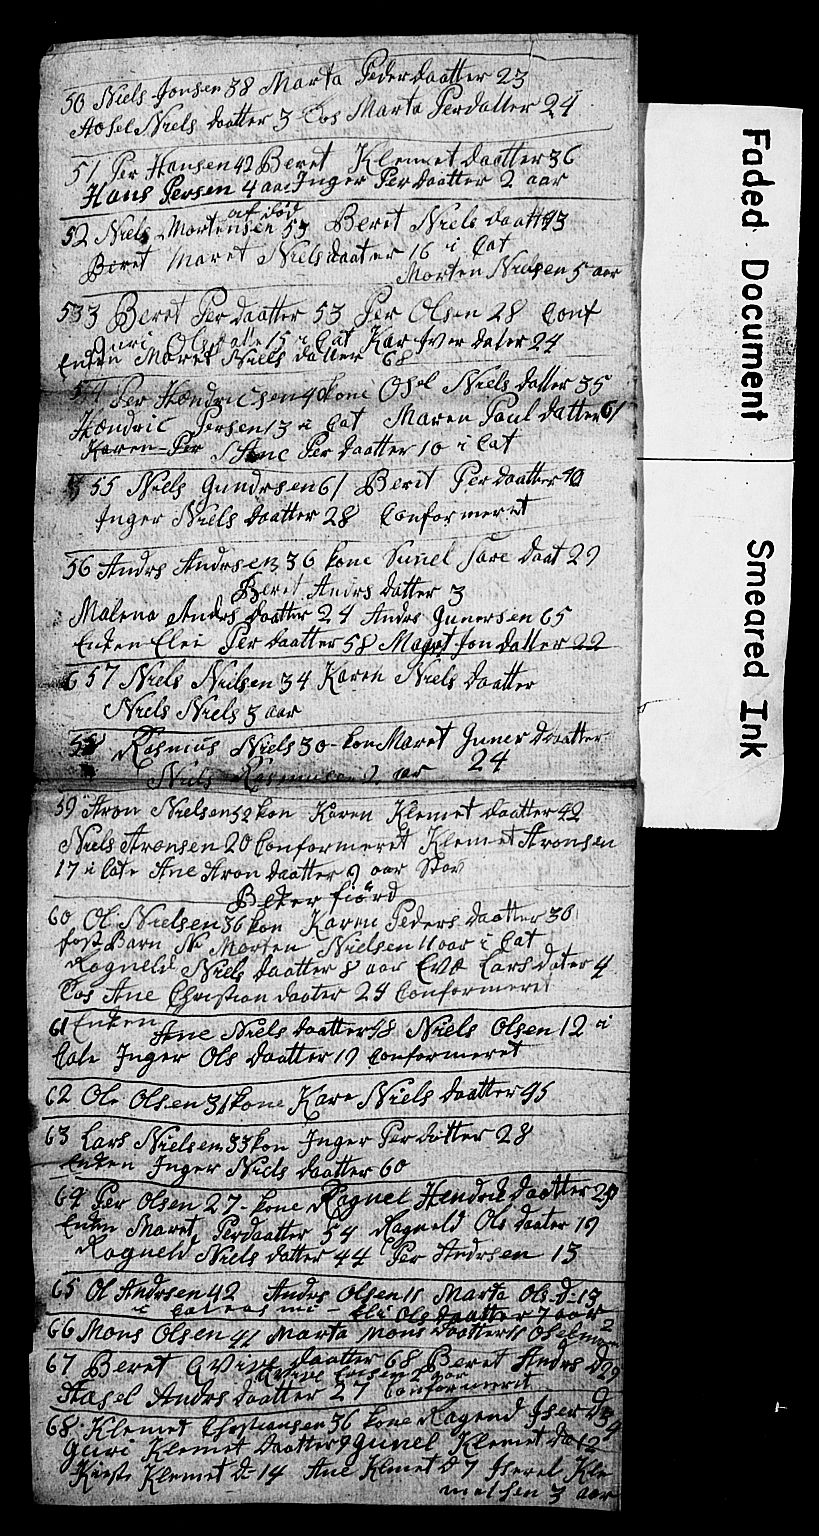 50 Niels Jonsen 38 Marta Peder daatter 23
Aosel Niels daatter 3 Cos Marta Perdatter 24
51 Per Hansen 42 Beret Klemet daatter 36
Hans Persen 4 aar Inger Per daatter 2 aar
af død
52 Niels Mortensen 53 Berit Niels daatt 43
Beret Maret Niels daater 16 i Cat
Morten Nielsen 5 aar
533 Beret Per daatter 53 Per Olsen 28 Conf
Olsdatte 15 i Cat Kar Iver dater 24
Enken Maret Niels datter 68
54 Per Hendricsen 40 kone Osel Niels datter 35
Hendric Persen 13 i Cat Maren Poul datter 61
Karen Per Ane Per daatter 10 i Cat
55 Niels Gundrsen 61 Berit Per daatter 40
Inger Niels daatter 28 Conformeret
56 Andrs Andrsen 36 kone Sunel Sare daat 29
Beret Andrs datter 3
Malena Andrs daatter 24 Andrs Gunersen 65
Enken Elei Per daatter 58 Maret Jon datter 22
6 57 Niels Nielsen 34 Karen Niels daatter
Niels Niels 3 aar
58 Rasmus Niels 30 kon Maret Guner daatter
Niels Rasmusen 2 aar 24
59 Aron Nielsen 52 kon Karen Klemet daatter 42
Niels Aronsen 20 Conformeret Klemet Aronsen
17 i Cate Ane Aron daatter 9 aar Stov
Beker fiörd
60 Ol Nielsen 36 kon Karen Peders daatter 30
fost Barn N Morten Nielsen 11 aar i Cat
Ragneld Niels daatter 8 aar Evæ Lars dater 4
Cos Ane Christian daater 24 Conformeret
61 Enken Ane Niels daatter 48 Niels Olsen 12 i
Cate Inger Ols daatter 19 Conformeret
62 Ole Olsen 31 kone Kare Niels daatter 45
63 Lars Nielsen 33 kon Inger Per datter 28
Enken Inger Niels daatter 60
64 Per Olsen 27 kone Ragnel Hendrik daatter 29
Enken Maret Perdaatter 54 Ragneld Ols daater 19
Ragneld Niels datter 44 Per Andrsen 13
65 Ol Andrsen 42 Andrs Olsen 11 Marta Ols D 13
i Eli Ols daatter 7 aar
66 Mons Olsen 41 Marta Mons daatter 2
67 Beret Qvive daatter 68 Beret Andrs D 29
Qvive Ericsen 2 aar
Aasel Andrs daatter 27 Conformerit
68 Klemet Christiansen 36 kone Ragend Iver D 34
Guri Klemet daatter 9 Gunel Klemet da 12
Kirste Klemet D 14 Ane Klmet D 7 Iverel Kle
metsen 3 aar
Faded Document
Smeared Ink